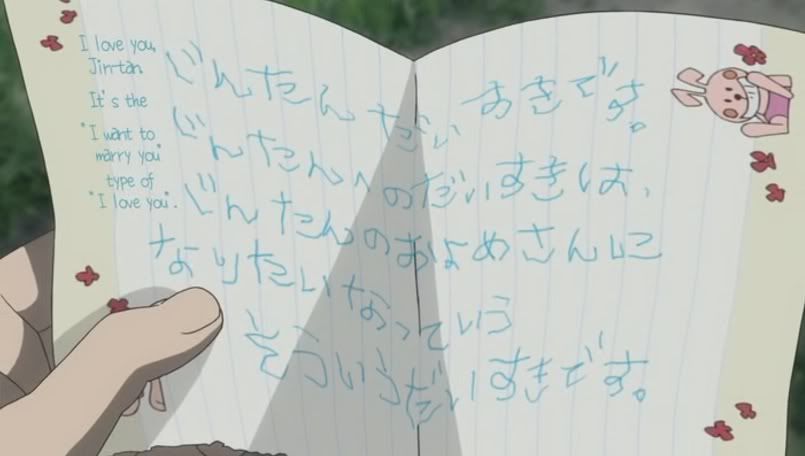 I love you,
Jin-tan
It's the
"I want to
marry you"
type of
"I love you".
じんたん だいすきです。
じんたんへのだいすきは、
じんたんのおよめさんに
なりたいなっていう
そういうだいすきです。